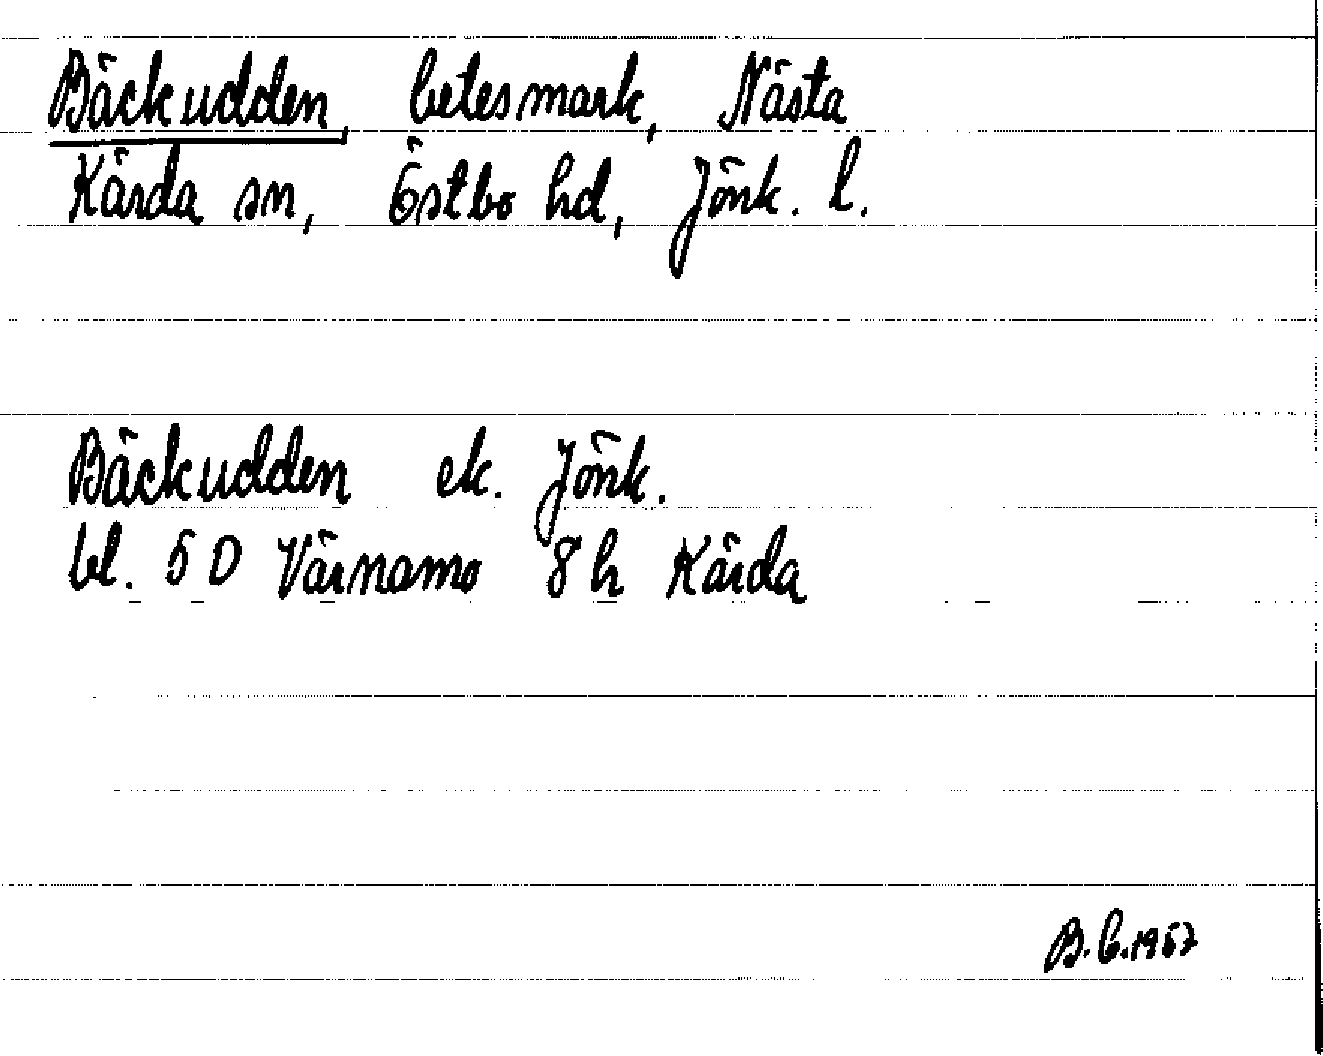 Bäckudden, betesmark, Nästa
Kärda sn, Östbo hd, Jönk. l.
Bäckudden ek. Jönk.
bl. 5 D Värnamo 8 h Kärda
B.C. 1957